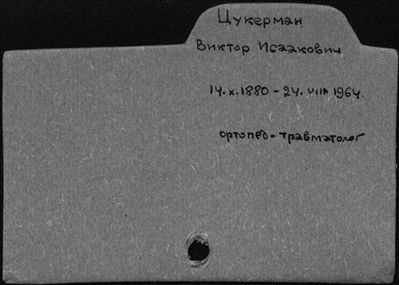 Цукерман
Виктор Исаакович
14.X.1880 - 24.VIII 1964.
ортопед - травматолог